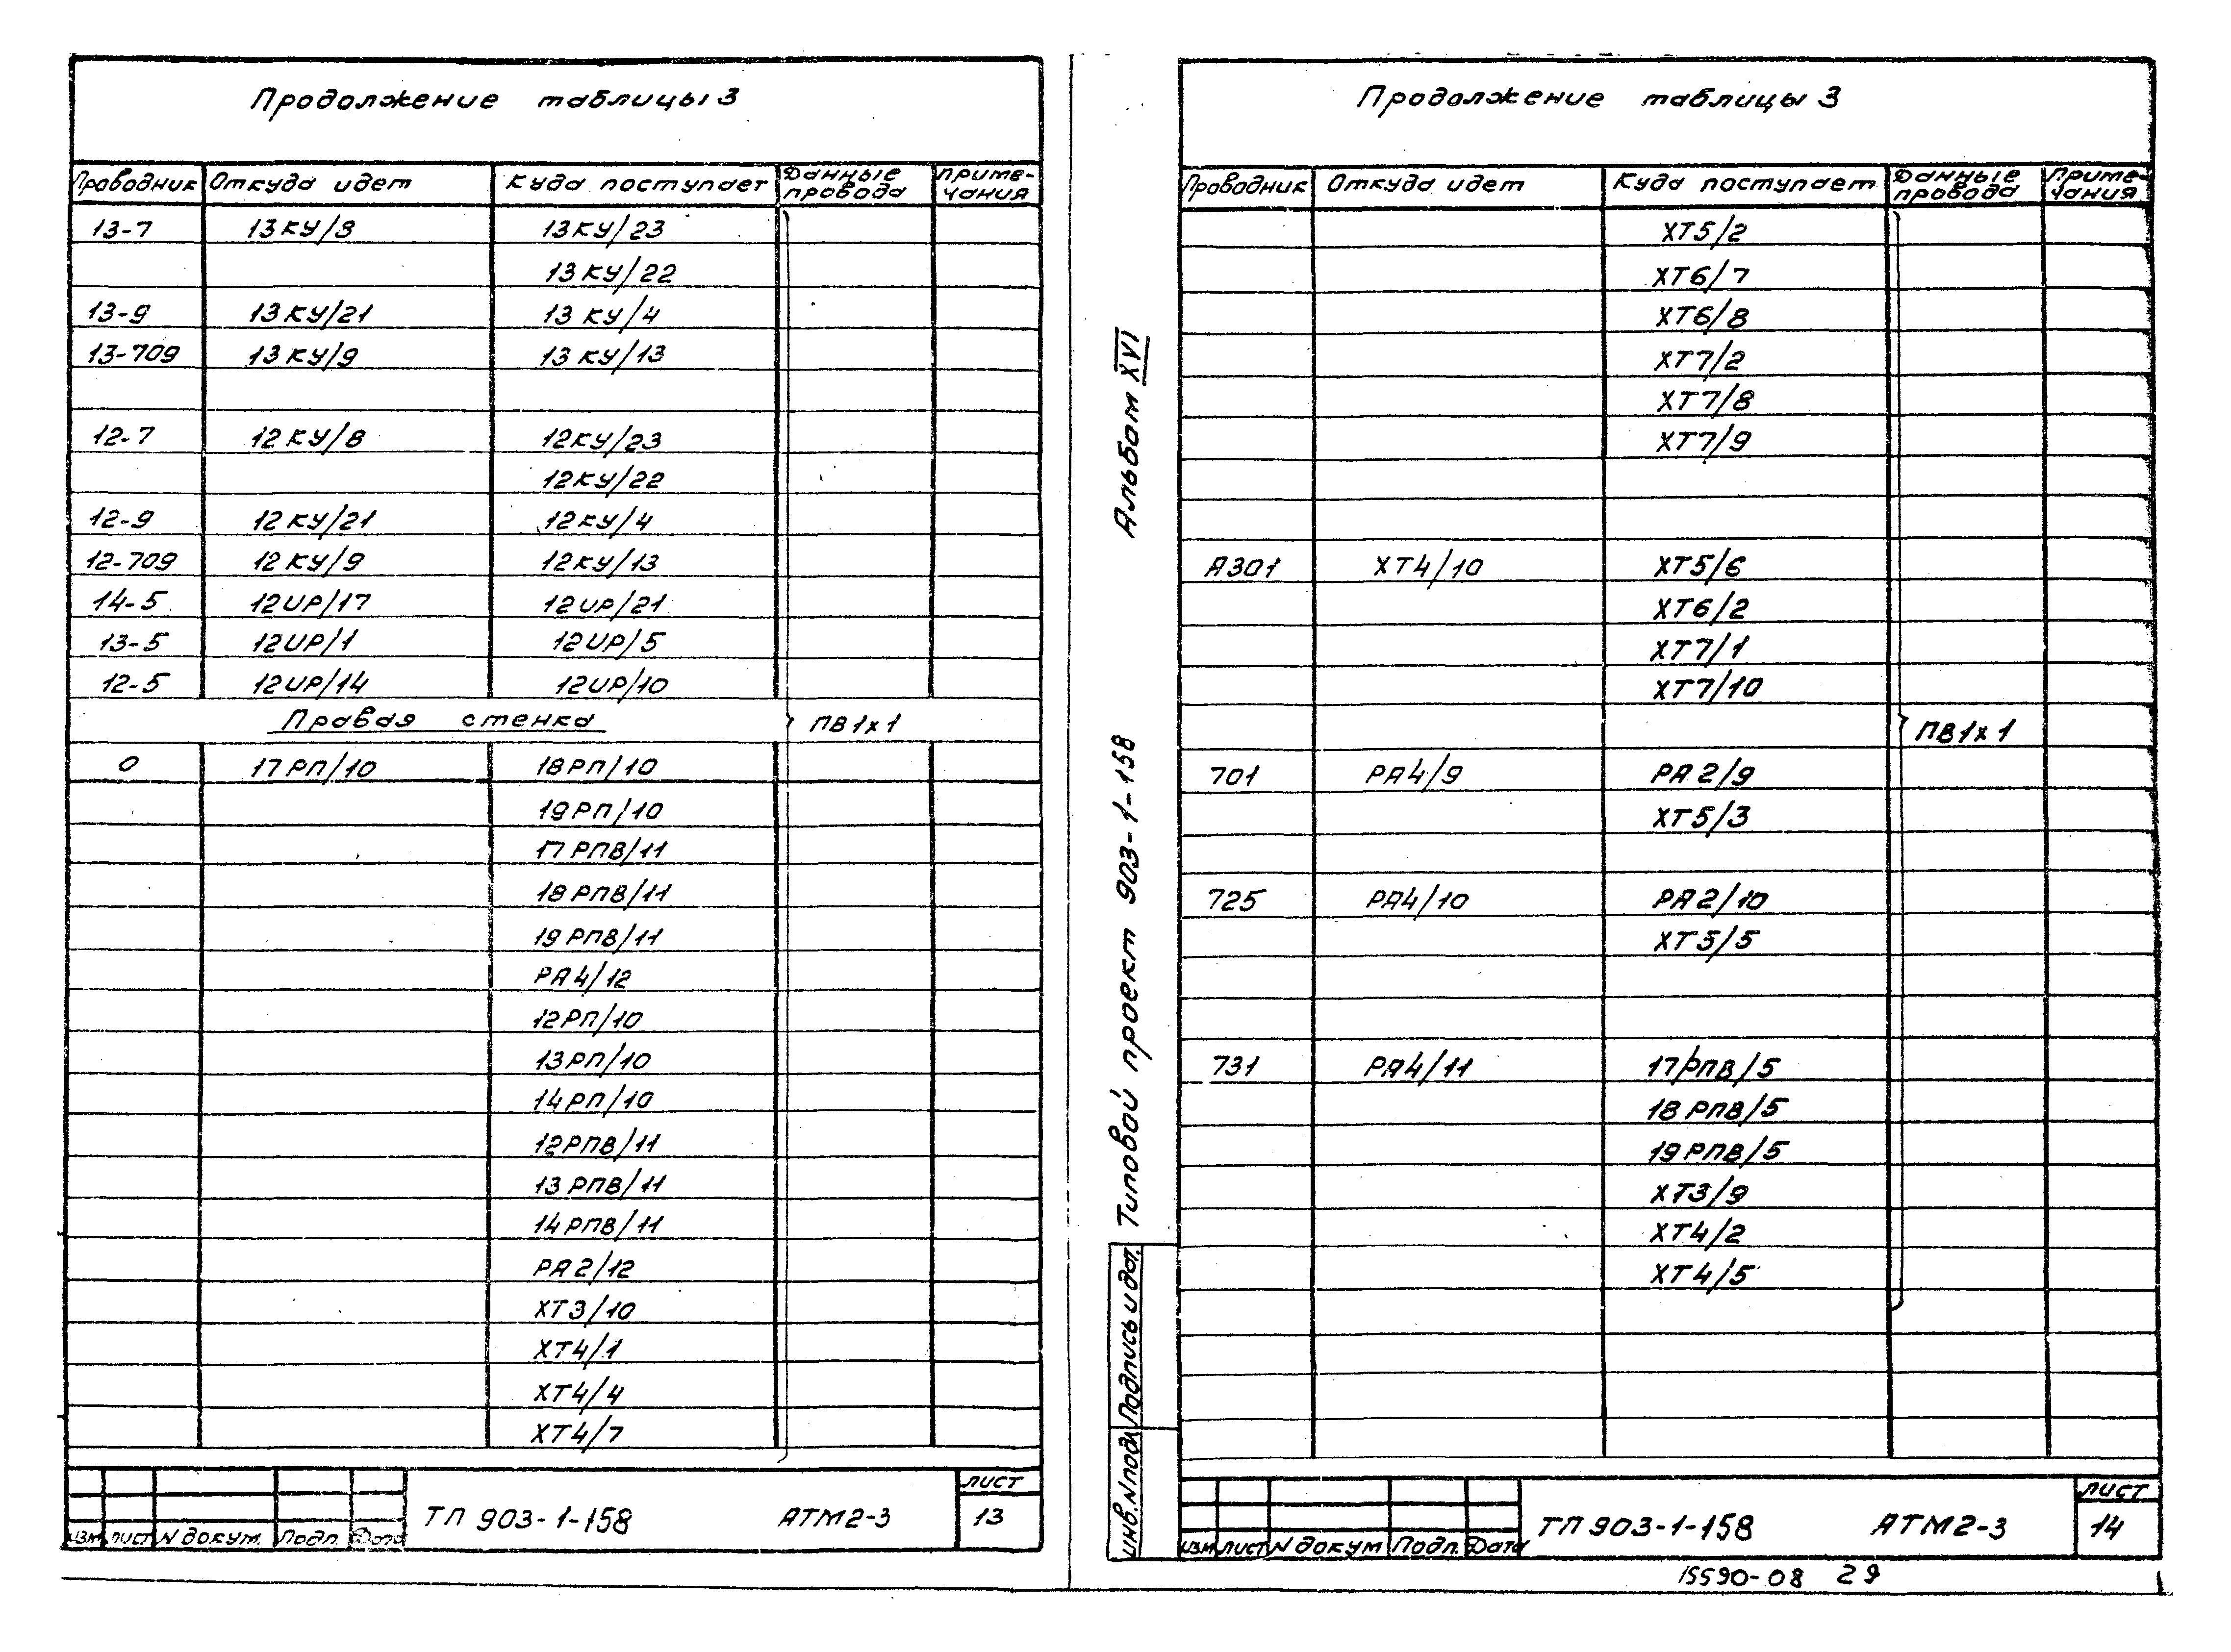 Продолжение таблицы 3
Проводник Откуда идет Куда поступает Данные провода Приме-чания
13-7 13КУ/8 13КУ/23
13КУ/22
13-9 13КУ/21 13КУ/4
13-709 13КУ/9 13КУ/13
12-7 12КУ/8 12КУ/23
12КУ/22
12-9 12КУ/21 12КУ/4
12-709 12КУ/9 12КУ/13
14-5 12UP/17 12UP/21
13-5 12UP/1 12UP/5
12-5 12UP/14 12UP/10
Правая стенка ПВ1х1
0 17РП/10 18РП/10
19РП/10
17РПВ/11
18РПВ/11
19РПВ/11
РА4/12
12РП/10
13РП/10
14РП/10
12РПВ/11
13РПВ/11
14РПВ/11
РА2/12
ХТ3/10
ХТ4/1
ХТ4/4
ХТ4/7
Изм Лист N докум. Подп. Дата
ТП 903-1-158 АТМ2-3
Лист
13
Альбом XVI
Типовой проект 903-1-158
Подпись и дат.
Инв.N подл
Продолжение таблицы 3
Проводник Откуда идет Куда поступает Данные провода Приме-чания
ХТ5/2
ХТ6/7
ХТ6/8
ХТ7/2
ХТ7/8
ХТ7/9
А301 ХТ4/10 ХТ5/6
ХТ6/2
ХТ7/1
ХТ7/10
ПВ1х1
701 РА4/9 РА2/9
ХТ5/3
725 РА4/10 РА2/10
ХТ5/5
731 РА4/11 17РПВ/5
18РПВ/5
19РПВ/5
ХТ3/9
ХТ4/2
ХТ4/5
Изм Лист N докум Подп. Дата
ТП 903-1-158 АТМ2-3
Лист
14
15590-08 29